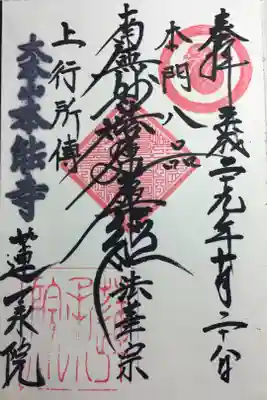 奉拝 平成二九年
本門八品
南無妙法蓮華経
法華宗
上行所傳
大本山本能寺
蓮承院